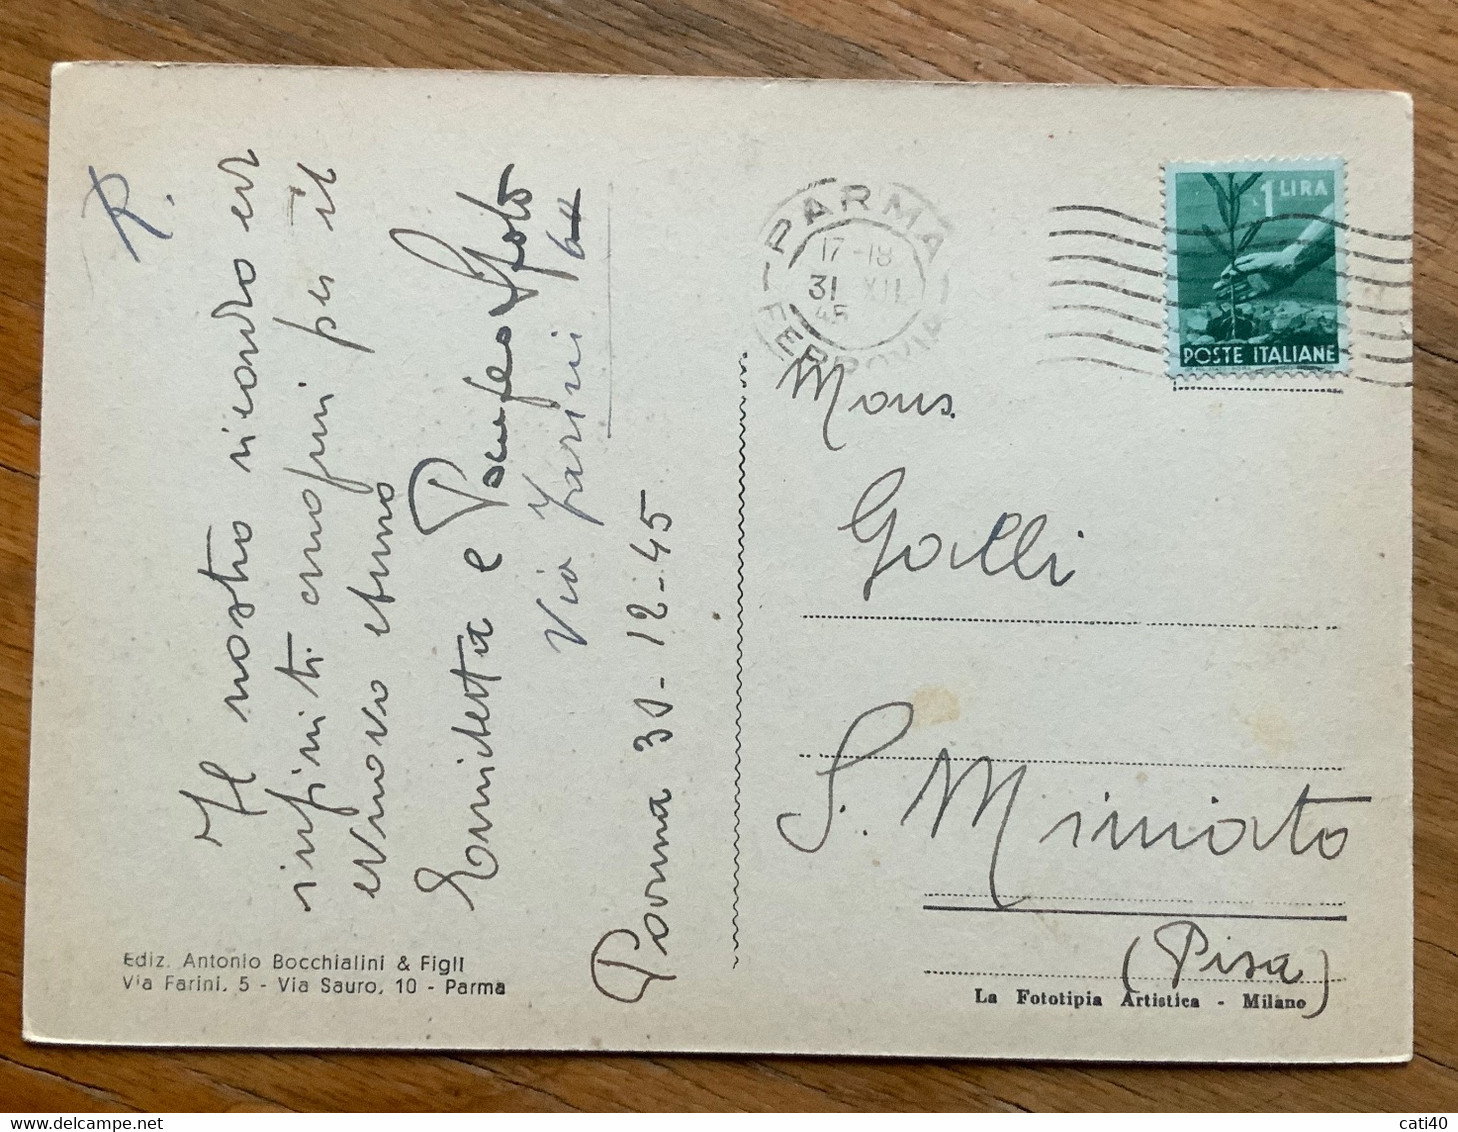 R.
Il nostro ricordo ed
infiniti auguri per il
nuovo anno
Enrichetta e
Via Farini 64
Parma 30-12-45
Ediz. Antonio Bocchialini & Figli
Via Farini, 5 - Via Sauro, 10 - Parma
PARMA
17-18
31 XII
45
FERROVIA
1 LIRA
POSTE ITALIANE
Mons.
Galli
S. Miniato
(Pisa)
La Fototipia Artistica - Milano
cati40